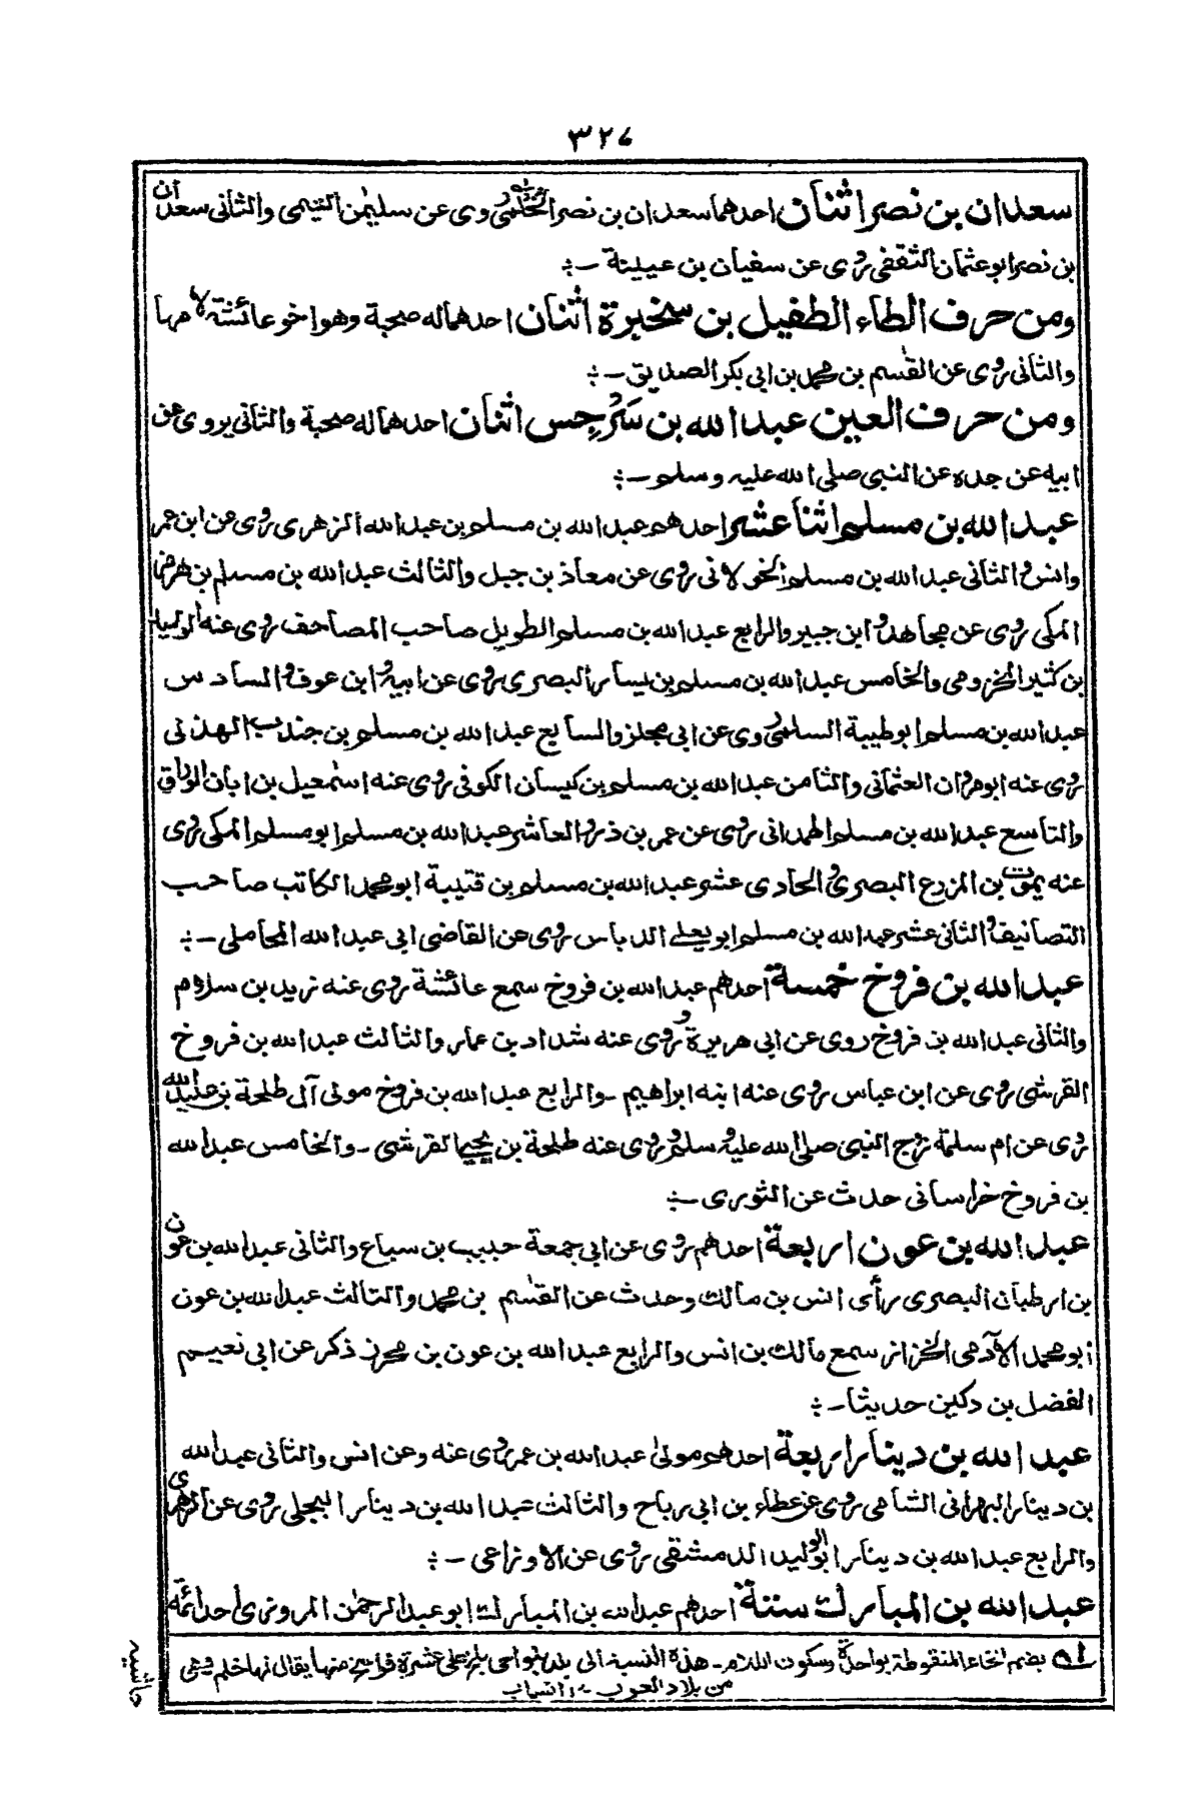 ٣٢٧
سعدان بن نصر اثنان احدهما سعدان بن نصر الخلمى روى عن سليمٰن التيمى والثانى سعدان
بن نصر ابو عثمان الثقفى روى عن سفيان بن عيينة ـ ؞
ومن حرف الطاء الطفيل بن سخبرة اثنان احدهما له صحبة وهو اخو عائشة لامها
والثانى روى عن القٰسم بن محمد بن ابى بكر الصديق ـ ؞
ومن حرف العين عبد الله بن سَرْجِس اثنان احدهما له صحبة والثانى يروى عن
ابيه عن جده عن النبى صلى الله عليه وسلم ـ ؞
عبد الله بن مسلم اثنا عشر احدهم عبد الله بن مسلم بن عبد الله الزهرى روى عن ابن عمر
وانس والثانى عبد الله بن مسلم الخولانى روى عن معاذ بن جبل والثالث عبد الله بن مسلم بن هرمز
المكى روى عن مجاهد وابن جبير والرابع عبد الله بن مسلم الطويل صاحب المصاحف روى عنه الوليد
بن كثير المخزومى والخامس عبد الله بن مسلم بن يسار البصرى روى عن ابيه وابن عوف والسادس
عبد الله بن مسلم ابو طيبة السلمى روى عن ابى مجلز والسابع عبد الله بن مسلم بن جندب الهذلى
روى عنه ابو مروان العثمانى والثامن عبد الله بن مسلم بن كيسان الكوفى روى عنه اسٰمعيل بن ابان الوراق
والتاسع عبد الله بن مسلم الهمدانى روى عن عمر بن ذر والعاشر عبد الله بن مسلم ابو مسلم المكى روى
عنه يموت بن المزرع البصرى والحادى عشر عبد الله بن مسلم بن قتيبة ابو محمد الكاتب صاحب
التصانيف والثانى عشر عبد الله بن مسلم ابو يعلى الدباس روى عن القاضى ابى عبد الله المحاملى ـ ؞
عبد الله بن فروخ خمسة احدهم عبد الله بن فروخ سمع عائشة روى عنه زيد بن سلام
والثانى عبد الله بن فروخ روى عن ابى هريرة وروى عنه شداد بن عمار والثالث عبد الله بن فروخ
القرشى روى عن ابن عباس روى عنه ابنه ابراهيم ـ والرابع عبد الله بن فروخ مولى آل طلحة بن عبيد الله
روى عن ام سلمة زوج النبى صلى الله عليه وسلم وروى عنه طلحة بن يحيى القرشى ـ والخامس عبد الله
بن فروخ خراسانى حدث عن الثورى ـ ؞
عبد الله بن عون اربعة احدهم روى عن ابى جمعة حبيب بن سباع والثانى عبد الله بن عون
بن ارطبان البصرى رأى انس بن مالك وحدث عن القٰسم بن محمد والثالث عبد الله بن عون
ابو محمد الآدمى الخزاز سمع مالك بن انس والرابع عبد الله بن عون بن محرز ذكر عن ابى نعيم
الفضل بن دكين حديثا ـ ؞
عبد الله بن دينار اربعة احدهم مولىٰ عبد الله بن عمر روى عنه وعن انس والثانى عبد الله
بن دينار البهرانى الشامى روى عن عطاء بن ابى رباح والثالث عبد الله بن دينار البجلى روى عن الزهرى
والرابع عبد الله بن دينار ابو الوليد الدمشقى روى عن الاوزاعى ـ ؞
عبد الله بن المبارك ستة احدهم عبد الله بن المبارك ابو عبد الرحمٰن المروزى احد ائمة
بضم الخاء المنقوطة بواحدة وسكون اللام ـ هذه النسبة الى بلد بنواحى بلخ على عشرة فراسخ منها يقال لها خلم وهى
من بلاد العرب ـ انساب
حاشيه